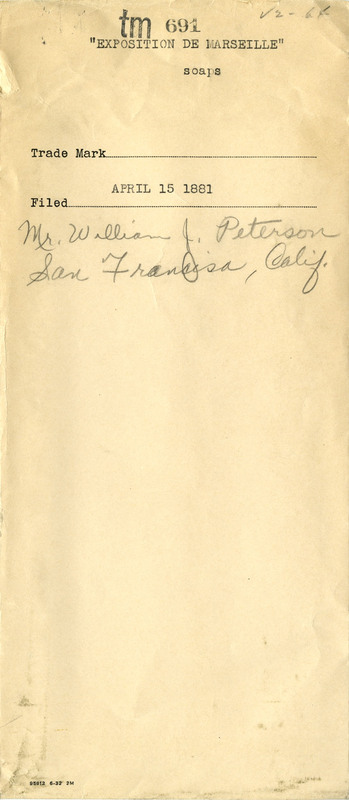 tm 691
"EXPOSITION DE MARSEILLE"
soaps
Trade Mark
APRIL 15 1881
Filed
Mr. William J. Peterson
San Francisa, Calif.